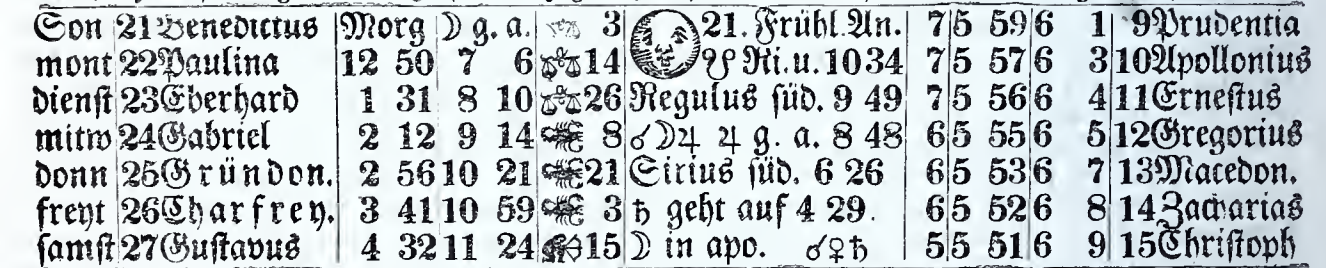 Son 21 Benedictus Morg ☽ g. a. 3 21. Frühl. An. 7 5 59 6 1 9 Prudentia
mont 22 Paulina 12 50 7 6 ♎ 14 ☋ Ri. u. 10 34 7 5 57 6 3 10 Apollonius
dienst 23 Eberhard 1 31 8 10 ♎ 26 Regulus süd. 9 49 7 5 56 6 4 11 Ernestus
mitw 24 Gabriel 2 12 9 14 ♏ 8 ☌☽♃ ♃ g. a. 8 48 6 5 55 6 5 12 Gregorius
donn 25 Gründon. 2 56 10 21 ♏ 21 Sirius süd. 6 26 6 5 53 6 7 13 Macedon.
freyt 26 Charfrey. 3 41 10 59 ♏ 3 ♄ geht auf 4 29. 6 5 52 6 8 14 Zacharias
samst 27 Gustavus 4 32 11 24 ♐ 15 ☽ in apo. ☌♀♄ 5 5 51 6 9 15 Christoph